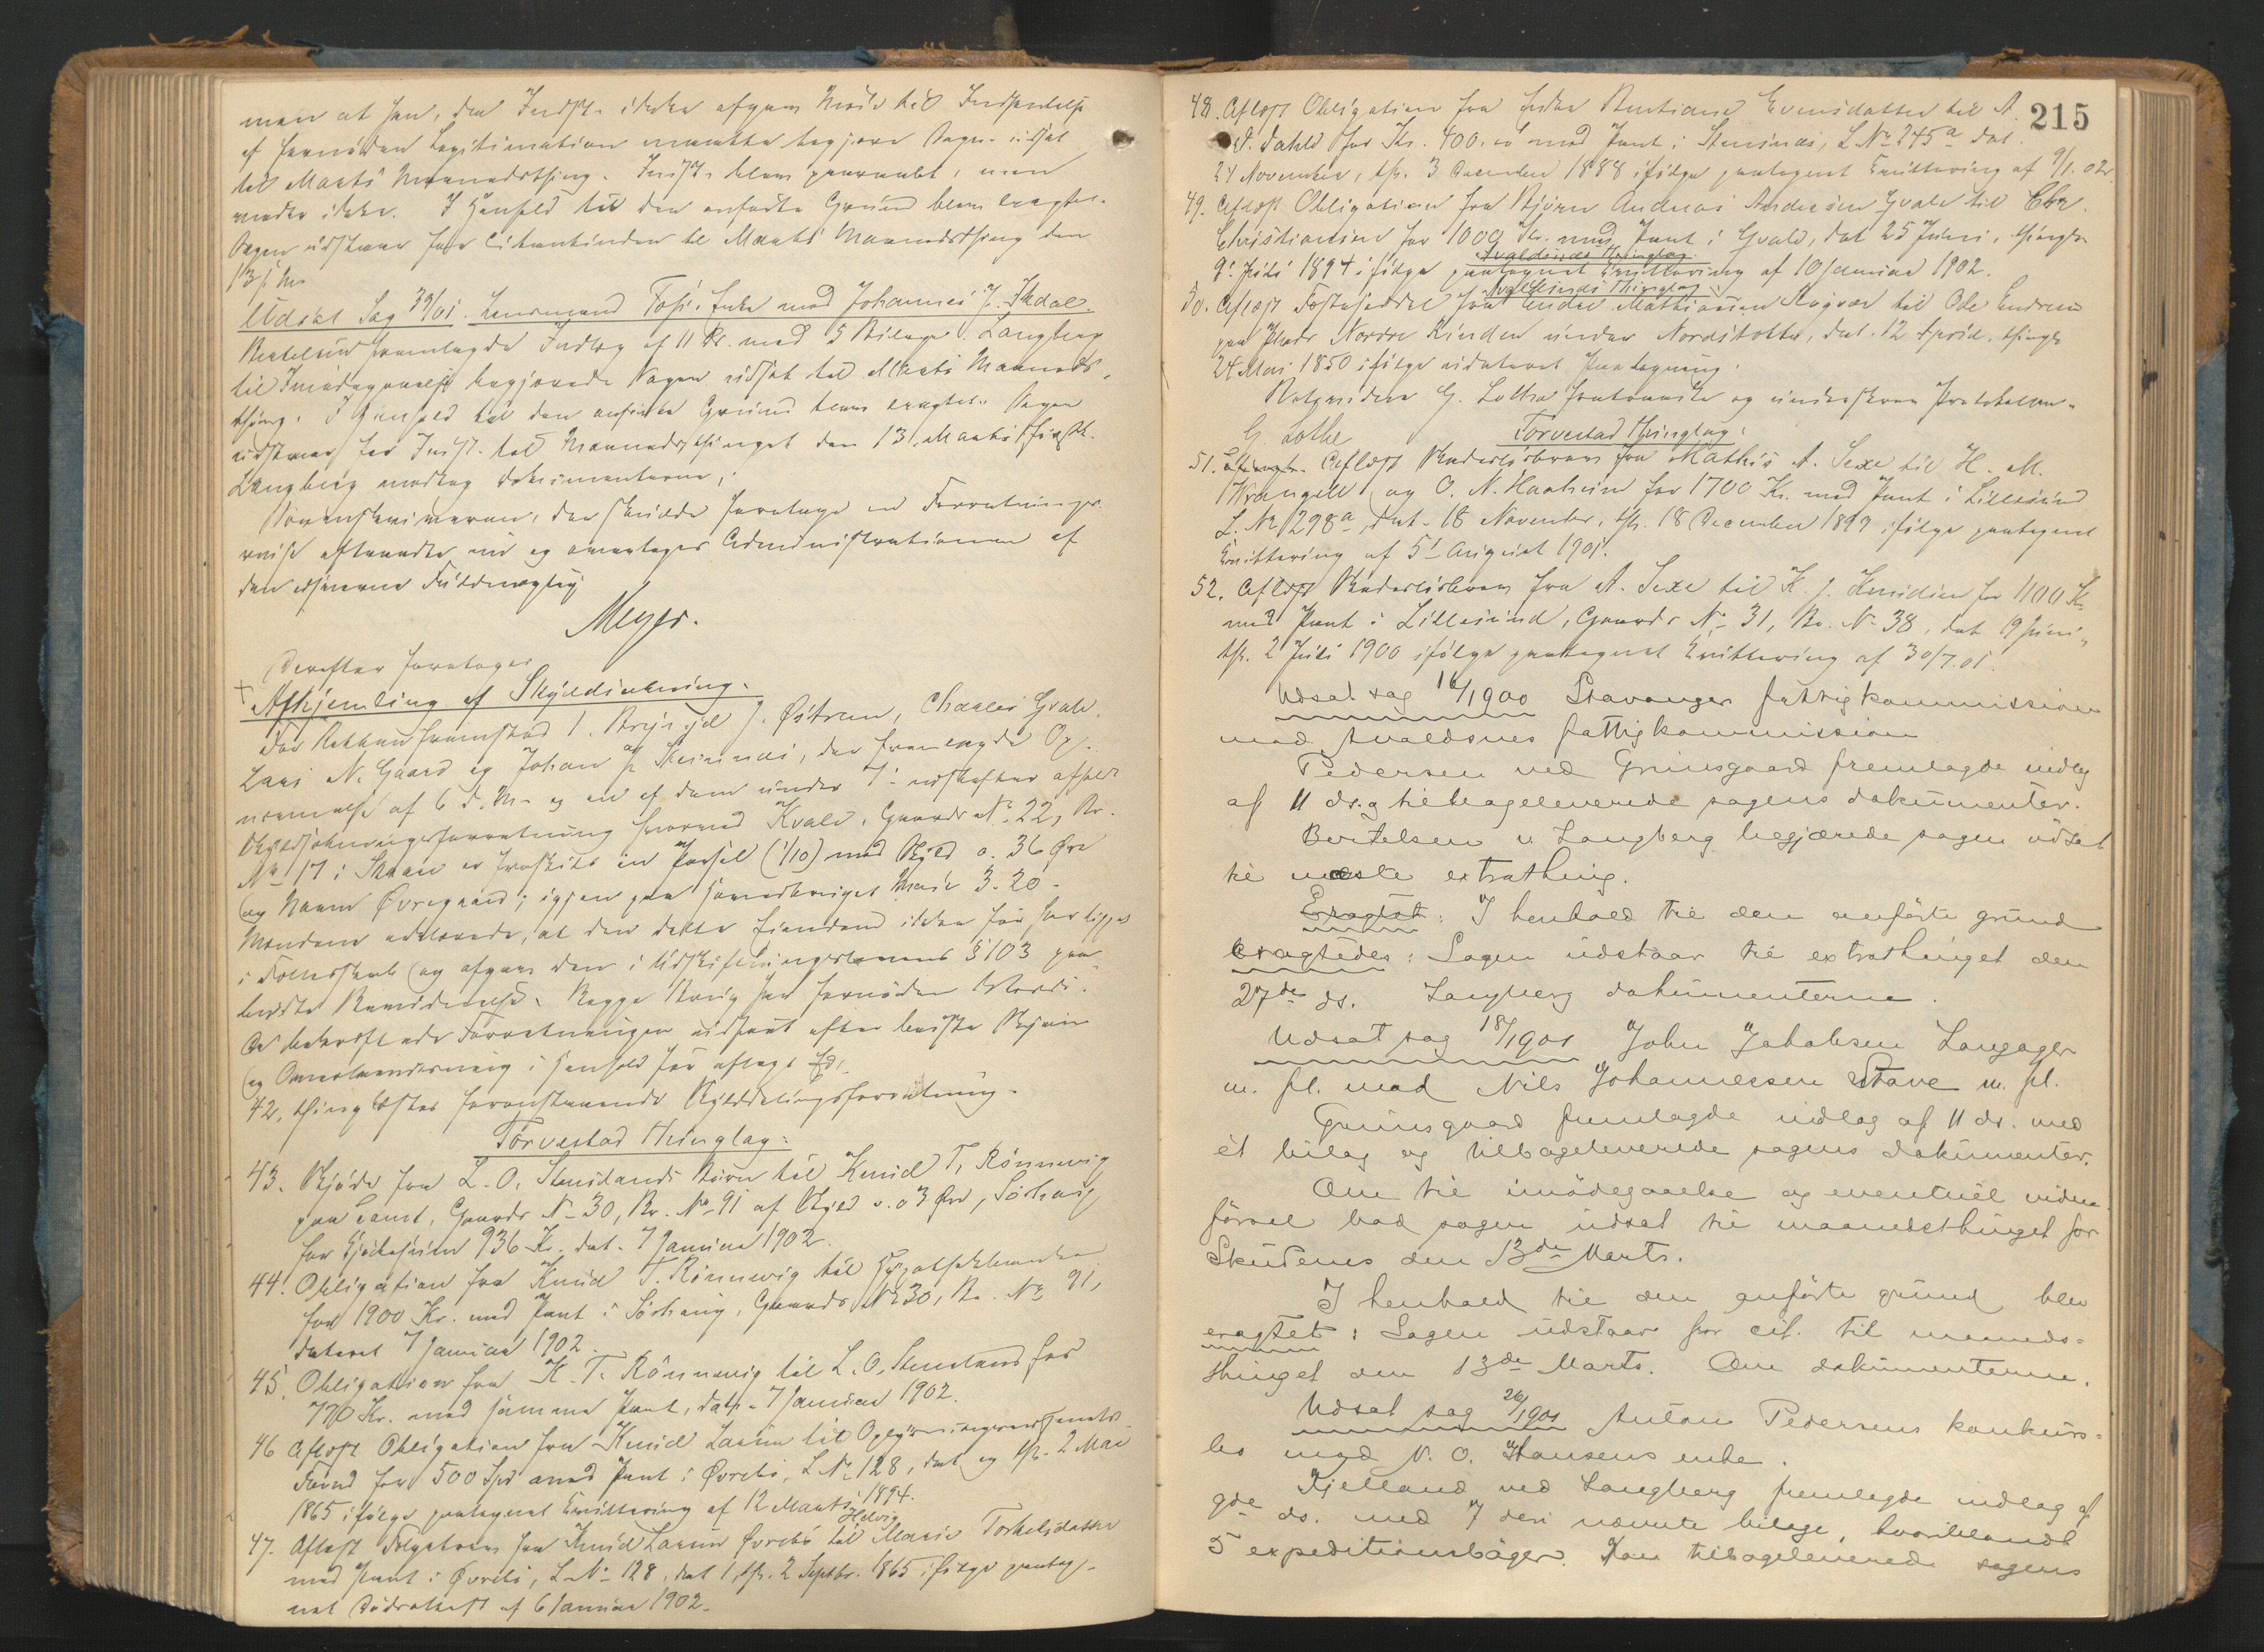 men at han, den Indst. ikke afgaar Møde til Indhentelse
af fornøden Legitimation maatte begjære Sagen udsat
til Marts Maanedsthing. Indst. blev paaraabt, men
mødte ikke. I Henhold til den anførte Grund blev eragtet:
Sagen udstaar for Citantinden til Marts Maanedsthing den
13 f. M.
Udsat Sag 39/01. Lensmand Enke mod Johannes J. Skdal.
Bertelsen fremlagde Indlæg af 11 ds. med 5 Bilage. Langberg
til Imødegaaelse begjærede Sagen udsat til Marts Maaneds-
thing. I Henhold til den anførte Grund blev eragtet: Sagen
udstaar for Indst. til Maanedsthinget den 13. Marts førstk.
Langberg modtog Dokumenterne;
Sorenskriveren, der skulde foretage en Forretnings-
reise aftraadte nu og overtages Administrationen af
den edsvorne Fuldmægtig
Meyer.
Derefter foretoges
+ Afhjemling af Skyldsætning.
For Retten fremstod 1. J. Østrem, Charles Gvale.
Lars N. Gaard og Johan P. Steinsnes, der fremlagde Op-
nævnelse af 6 d. M. og en af dem under 7. udskreven afholdt
Skyldsætningsforretning hvorved Kvale, Gaards No 22, Br.
No 17 i Skaare er fraskilt en Parsel (1/10) med Skyld o. 36 Øre
og Navn Øvregaard; igjen paa hovedbruget Mark 3.20.
Mændene erklærede, at den delte Eiendom ikke før har ligget
i Fællesskab og afgav den i Udskiftningslovens § 103 paa-
budte Bevidnelse. Begge Brug har fornøden Udmark.
De bekræftede Forretningen udført efter bedste Skjøn
og Overbevisning i Henhold før aflagt Ed.
42. thinglæstes foranstaaende Skylddelingsforretning.
Torvestad Thinglag:
43. Skjøde fra L. O. Stenslands til Knud T. Rönnevig
paa Tomt, Gaards No 30, Br. No 91 af Skyld o. 03 Øre, Sörhaug
for Kjøbesum 936 Kr. dat. 7 Januar 1902.
44. Obligation fra Knud T. Rönnevig til Hypothekbanken
for 1900 Kr. med Pant i Sörhaug, Gaards No 30, Br. No 91,
dateret 7 Januar 1902.
45. Obligation fra K. T. Rönnevig til L. O. Stensland for
770 Kr. med samme Pant, dat. 7 Januar 1902.
46 Aflæst Obligation fra Knud Larsen til Oplysningsvæsenets
Fond for 500 Spd mod Pant i Øvrebö, L No 128, dat og th. 2 Mai
1865 ifølge paategnet Kvittering af 12 Marts 1894.
Helvig
47. Aflæst Folgebrev fra Knud Larsen Øvrebö til Marie Torkelsdatter
med Pant i Øvrebö, L. No 128, dat 1, th. 2 Septbr. 1865 ifølge paateg-
net Dödsattest af 6 Januar 1902.
215
48. Aflæst Obligation fra Enke Bertine Evensdatter til A.
A. Dahle for Kr. 400.00 med Pant i Stensnes, L No 245a dat.
24 November, th. 3 December 1888 ifølge paategnet Kvittering af 9/1.02.
49. Aflæst Obligation fra Bjørn Andreas Andersen Gvale til Chr.
Christiansen for 1000 Kr. med Pant i Gvale, dat 25 Juni, thingl.
Avaldsnæs Thinglag.
9. Juli 1894 ifølge paategnet Kvittering af 10 Januar 1902.
Avaldsnæs Thinglag
50. Aflæst Fæsteseddel fra Endre Mathiasen Rogvær til Ole Endresen
paa Plads Nordre Rinden under Nordstokke, dat. 12 April, thingl.
24 Mai 1850 ifølge udateret Paategning.
Retsvidne G. Lothe fratraadte og underskrev Protokollen.
G. Lothe
Torvestad Thinglag:
51. Aflæst Skadesløsbrev fra Mathis A. Sexe til H. M.
Wrangell og O. N. Haaheim for 1700 Kr. med Pant i Lillesund
L. No 298a, dat. 18 November, th. 18 December 1897 ifølge paategnet
Kvittering af 5. August 1901.
52. Aflæst Skadesløsbrev fra A. Sexe til K. J. Knudsen for 1100 Kr.
med Pant i Lillesund, Gaards No 31, Br. No 38, dat 19 Juni,
th. 2 Juli 1900 ifølge paategnet Kvittering af 30/7.01.
Udsat sag 16/1900 Stavanger fattigkommission
mod Avaldsnes fattigkommission
Pedersen ved Grimsgaard fremlagde indlæg
af 11 ds. og tilbageleverede sagens dokumenter.
Bertelsen v. Langberg begjærede sagen udsat
til næste extrathing.
Eragtet: I henhold til den anførte grund
eragtedes: Sagen udstaar til extrathinget den
27de ds. Langberg dokumenterne.
Udsat sag 18/1901 John Jakobsen Langager
m. fl. mod Nils Johannessen Stave m. fl.
Grimsgaard fremlagde indlæg af 11 ds. med
et bilag og tilbageleverede sagens dokumenter.
Ove til imødegaaelse og eventuel vidne-
førsel bad sagen udsat til maanedsthinget for
Skudenes den 13de Marts.
I henhold til den anførte grund blev
eragtet: Sagen udstaar for cit. til maaneds-
thinget den 13de Marts. Ove dokumenterne.
Udsat sag 26/1901 Anton Pedersens konkurs-
bo mod N. O. Hansens enke.
Kjelland ved Langberg fremlagde indlæg af
9de ds. med 7 deri nævnte bilage, hvoriblandt
5 expeditionsbøger. Han tilbageleverede sagens